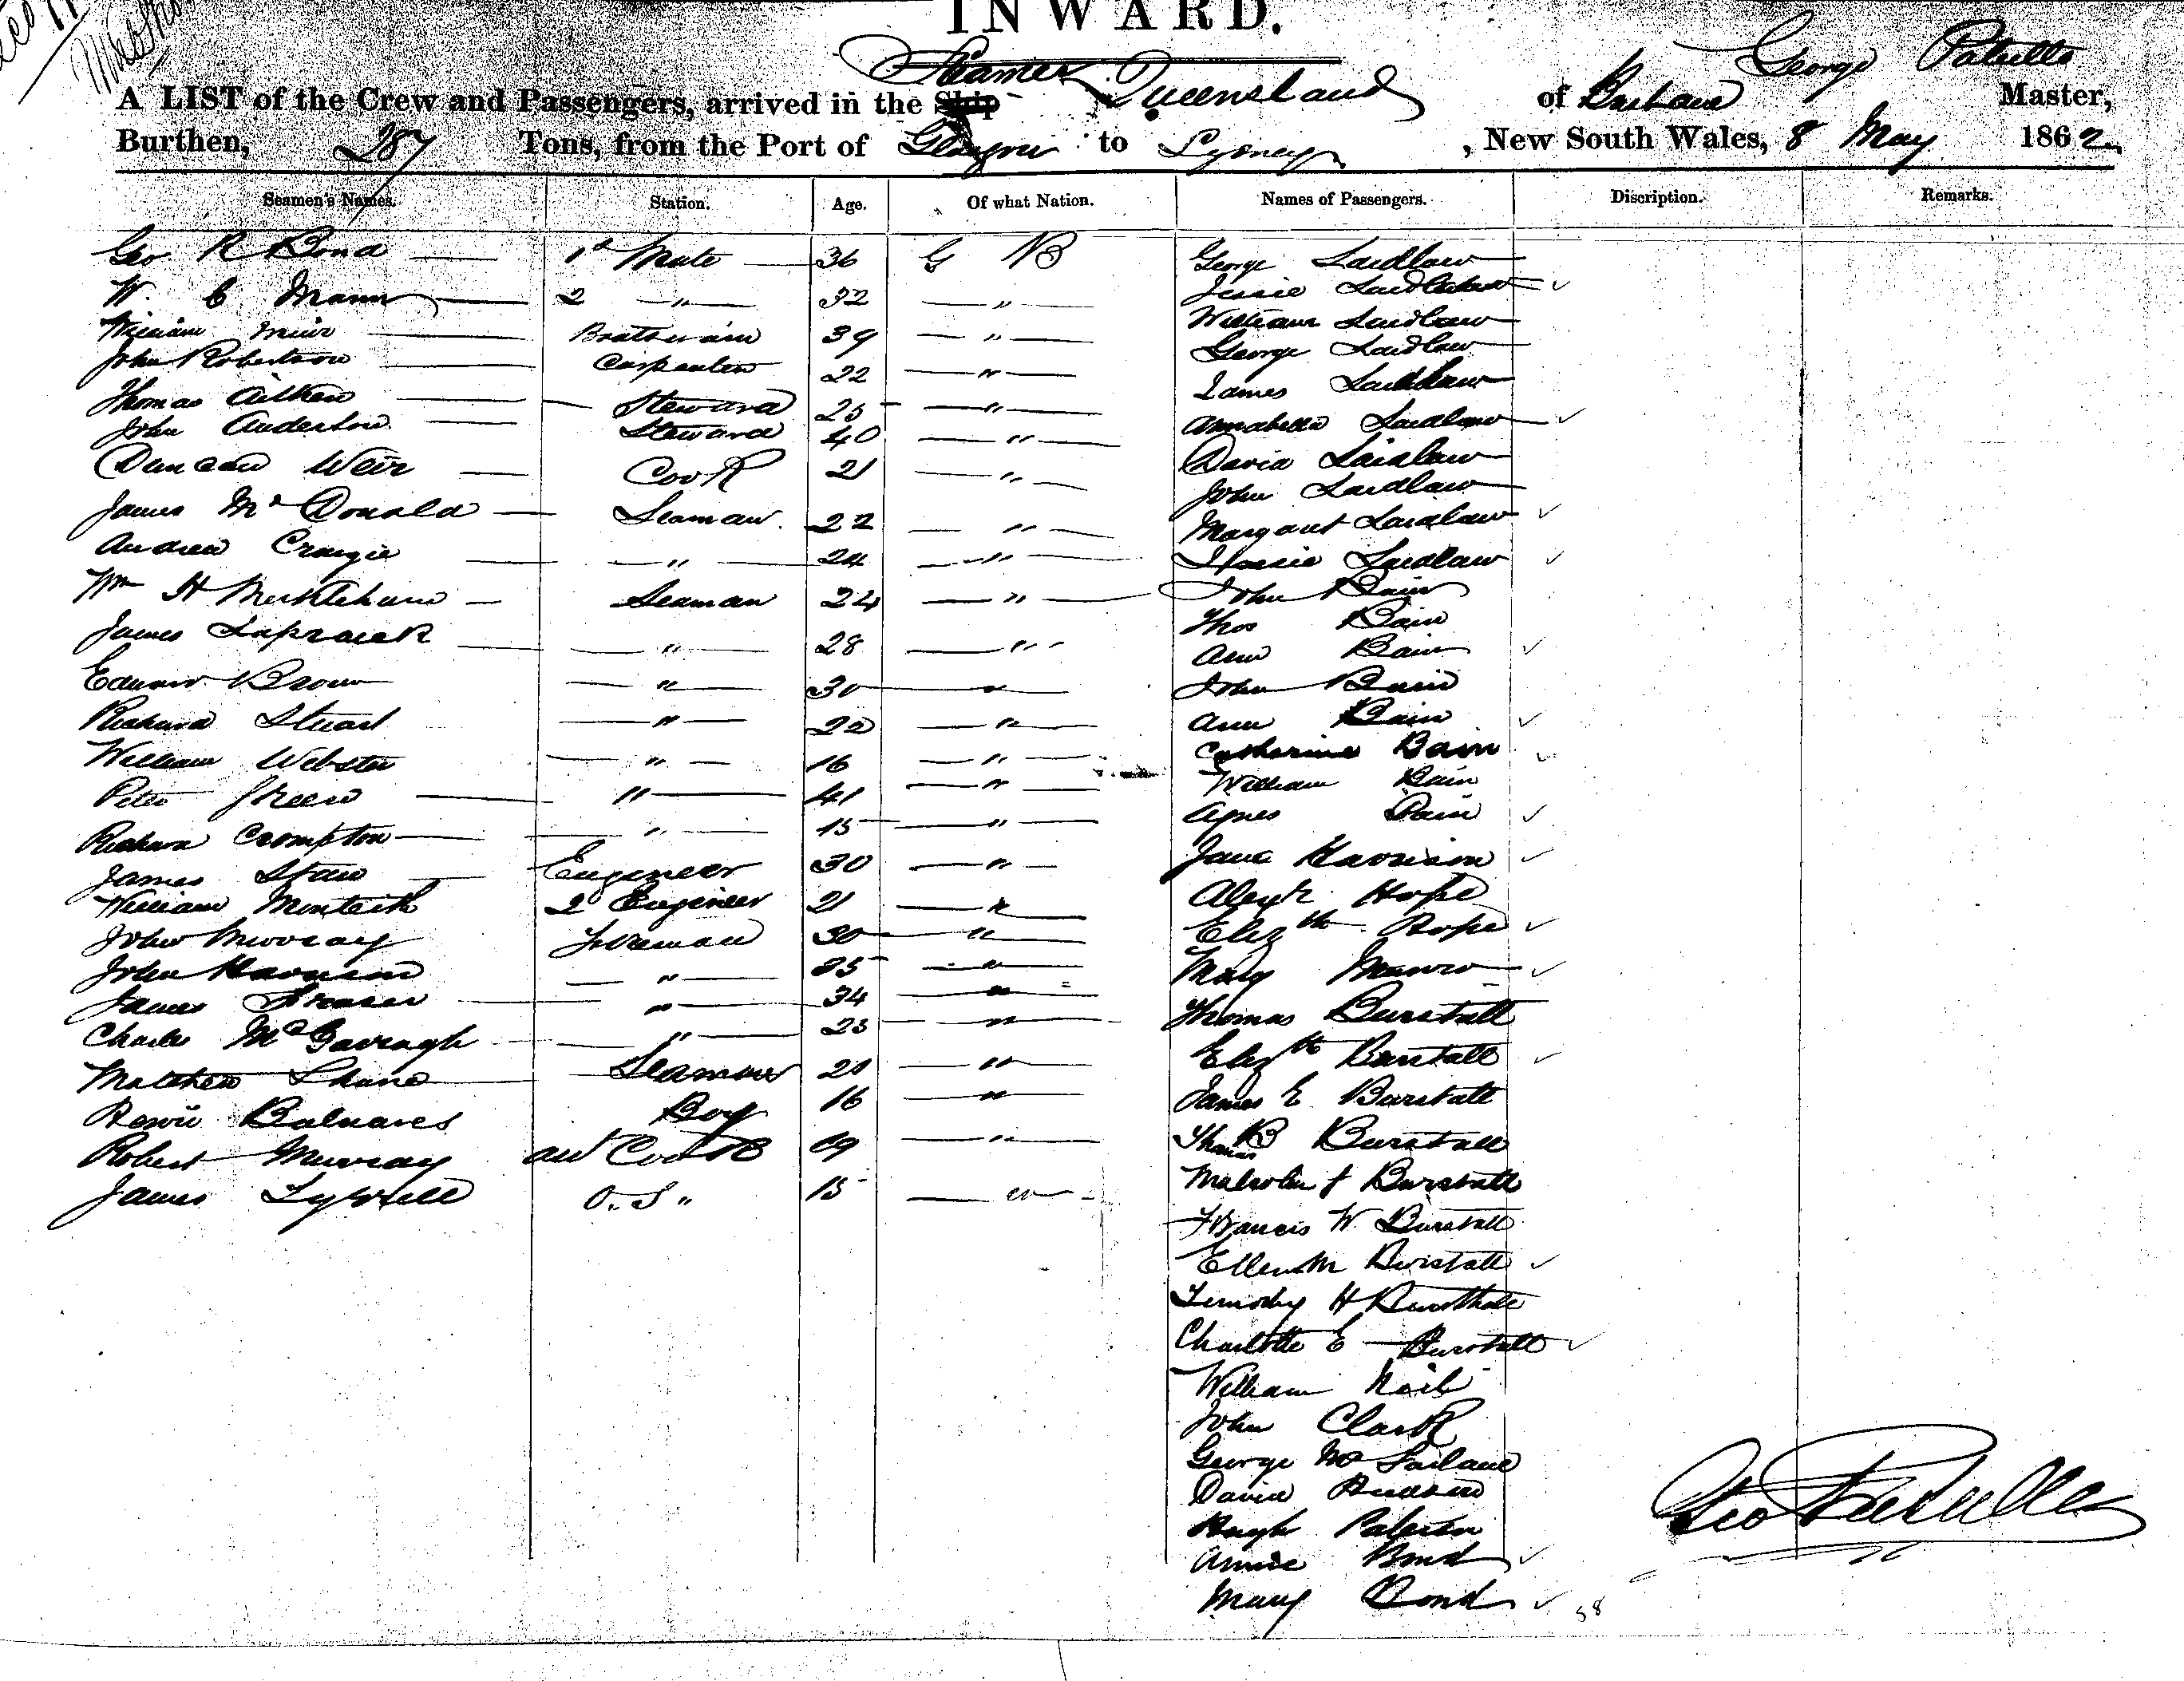 INWARD.
Steamer Queensland of Brisbane George Patullo Master,
A LIST of the Crew and Passengers, arrived in the Ship
Burthen, 287 Tons, from the Port of Glasgow to Sydney, New South Wales, 8 May 1862
Seamen's Names. Station. Age. Of what Nation. Names of Passengers. Discription. Remarks.
Geo R Bond 1st Mate 36 G B George Laidlaw
W. C Mann 2 " 32 " Jessie Laidlaw
William Muir Boatswain 39 " William Laidlaw
George Laidlaw
John Robertson Carpenter 22 " James Laidlaw
Thomas Aitken Steward 25 " Annabella Laidlaw
John Anderton Steward 40 "
Duncan Weir Cook 21 " David Laidlaw
John Laidlaw
James McDonald Seaman 22 " Margaret Laidlaw
Andrew Craigie " 24 " Laidlaw
Wm H Seaman 24 " John Bain
Thos Bain
James Lapraick " 28 " Ann Bain
Edward Brown " 30 " John Bain
Richard Stuart " 22 " Ann Bain
William Webster " 16 " Catherine Bain
William Bain
Peter " 41 " Agnes Bain
Richard Crompton " 15 "
James Shaw Engineer 30 " Jane Harrison
William Monteith 2 Engineer 21 " Alexr Hope
John Murray Fireman 30 " Elizth Hope
John Harrison " 35 " Mary Munro
James Fraser " 34 " Thomas Burstall
Charles McGavragh " 23 "
Matthew Seaman 21 " Elizth Burstall
Balnaves Boy 16 " James E Burstall
Robert Murray Cook 19 " Thomas B Burstall
James O.S " 15 " Malcolm J Burstall
Francis W Burstall
Ellen M Burstall
Timothy H Burstall
Charlotte E Burstall
William Neil
John Clark
George McFarlane
David
Hugh Paterson
Annie Bond
Mary Bond 38
Geo Patullo